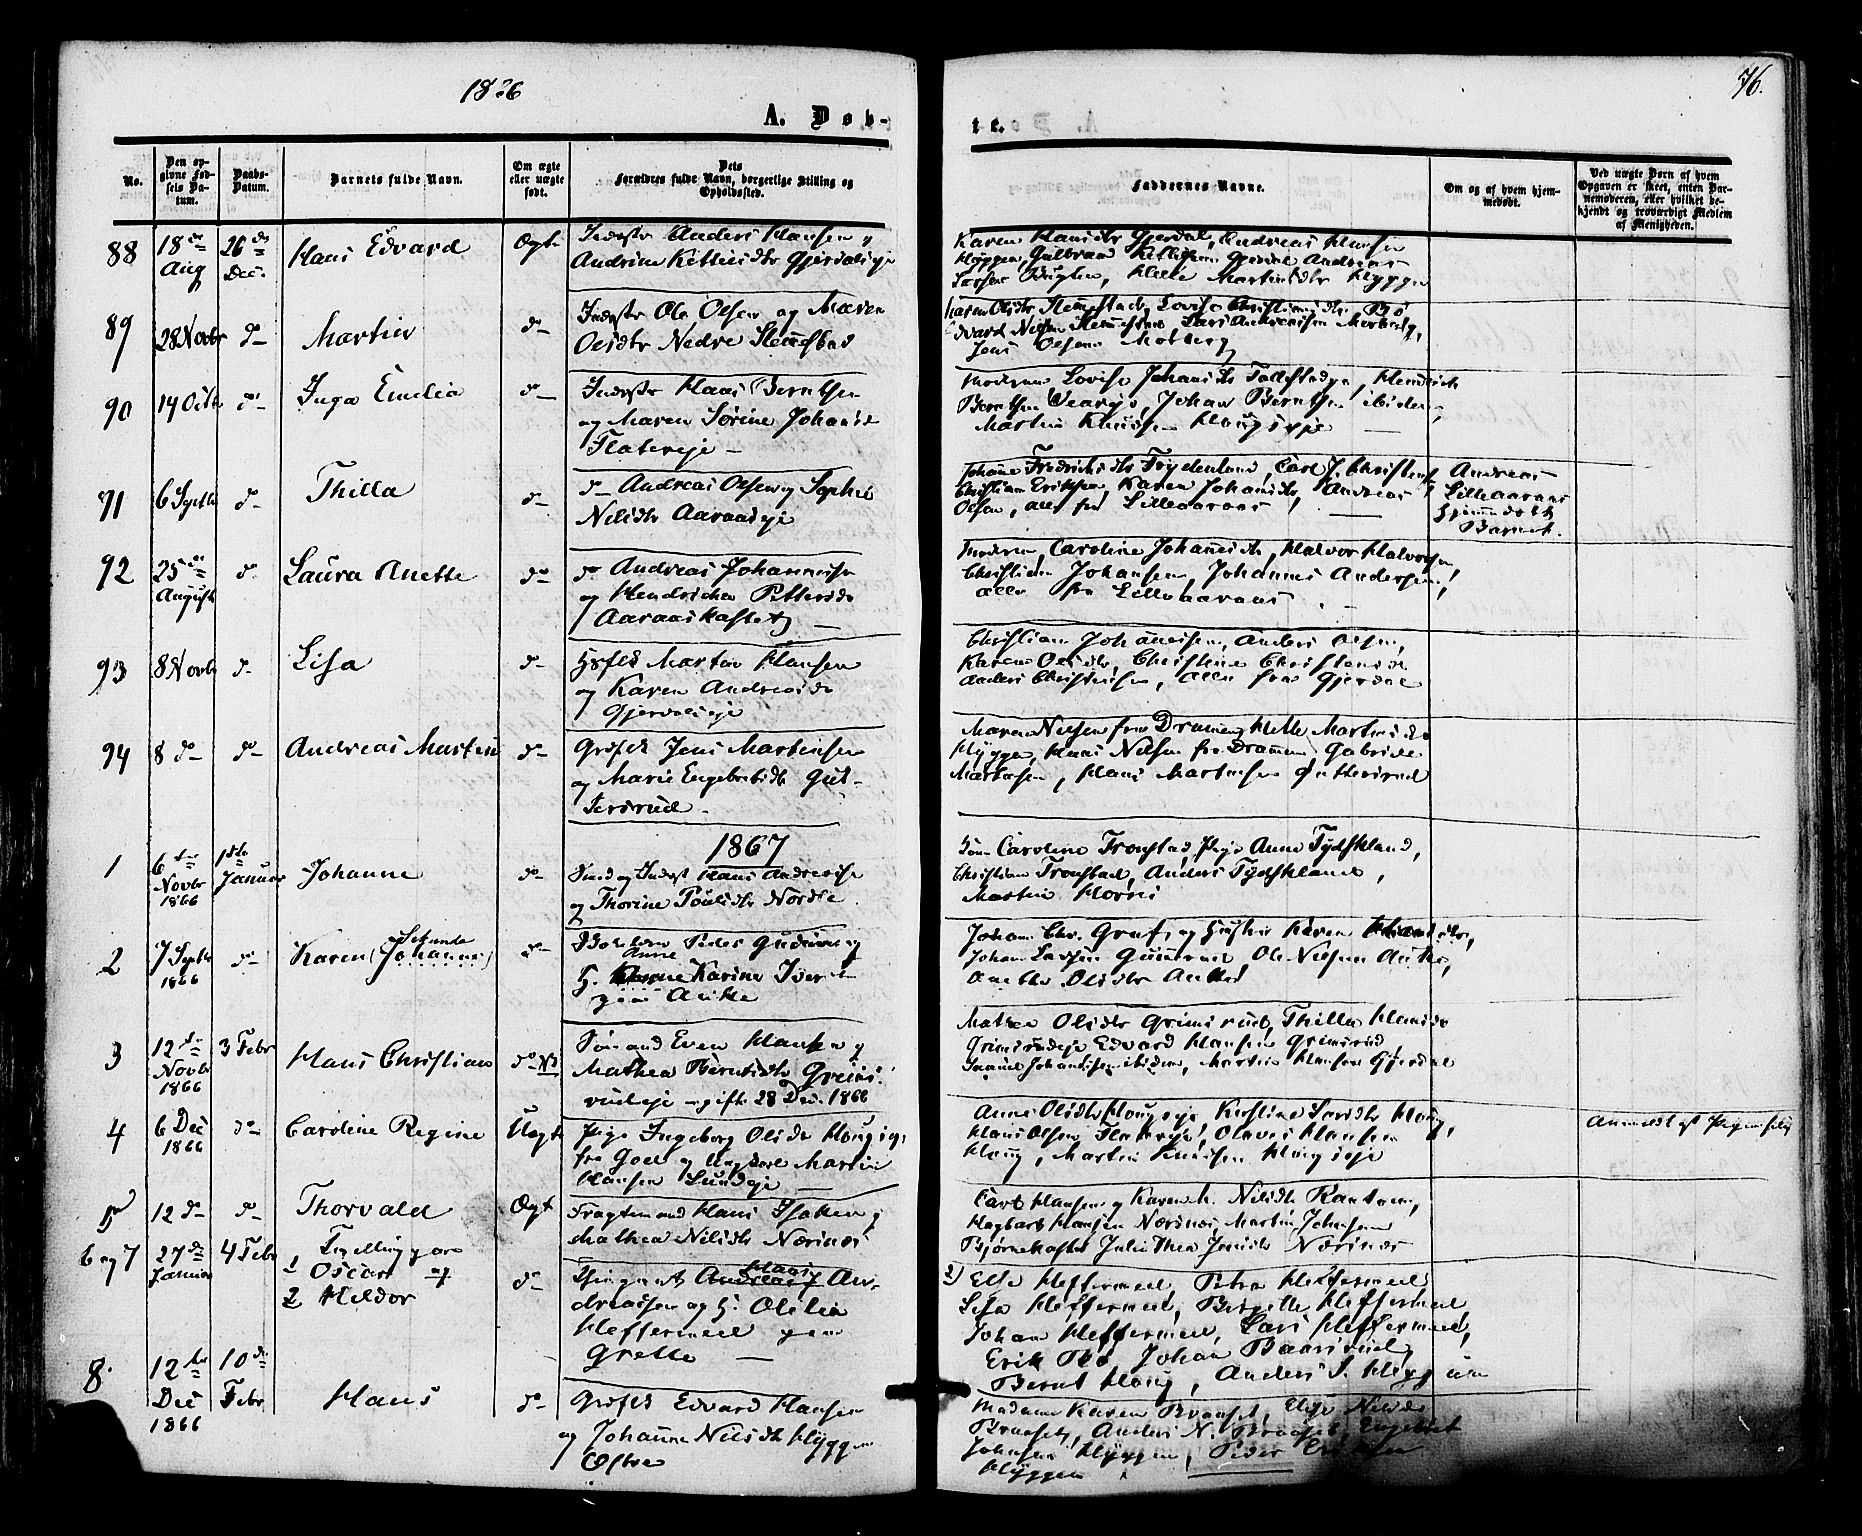 1866
76.
A. Døb-
te.
No.
Den op-
givne Fød-
sels Da-
tum.
Daabs-
Datum.
Barnets fulde Navn.
Om ægte
eller uægte
født.
Dets
Forældres fulde Navn, borgerlige Stilling og
Opholdssted.
Faddernes Navne.
Om og af hvem hjem-
medøbt.
Ved uægte Børn af hvem
Opgaven er skeet, enten Bar-
nemoderen, eller hvilket be-
kjendt og troværdigt Medlem
af Menigheden.
88
18de
Aug
26de
Dec.
Hans Edvard
Ægte
Inderste Anders Hansen,
Andrine Kettilsdtr Gjerdalseje
Karen Hansdtr Gjerdal, Andreas Hansen
Høggen, Gulbrand Gjerdal, Andreas
Larsen, Helle Martinsdtr Hyggen
89
28 Novbr
do
Martin
do
Inderste Ole Olsen og Maren
Olsdtr Nedre Slemmestad
Maren Olsdtr Slemmestad, Lovise Christiansdtr Bø,
Edvard Nilsen Slemmestad, Lars Andreassen Morberg,
Jens Olsen Morberg
90
14 Octb
do
Inga Emilia
do
Inderste Hans Berntsen
og Maren Sørine Johansd
Flateeje
Moderen, Lovise Johansdtr Follestadeje, Hendrik
Berntsen, Johan Berntsen ibidem,
Martin Knudsen Hougseje
91
6 Septbr
do
Thilla
do
do Andreas Olsen og Sophie
Nilsdtr Aaraaseje
Johanne Fredriksdtr Frydenlund, Carl J. Christensen,
Christian Eriksen, Karen Johansdtr, Andreas
Olsen, alle fra Lilleaaraas
Andreas
Lilleaaraas
hjemmedøbt
Barnet.
92
25de
August
do
Laura Anette
do
do Andreas Johannesen
og Hendrikke Pettersdtr
Aaraaskastet
Moderen, Caroline Johannesdtr, Halvor Halvorsen,
Christian Johansen, Johannes Andersen,
alle fra Lilleaaraas
93
8 Novbr
do
Lisa
do
Hsfolk Martin Hansen
og Karen Andreasdtr
Gjerdalseje
Christian Johansen, Anders Olsen,
Karen Olsdtr, Christine Christensdtr
Anders Christensen, alle fra Gjerdal
94
8 do
do
Andreas Martin
do
Grdflk Jens Martinsen
og Marie Engebretsdtr Gut-
tersrud
Maren Nilsen fra Drammen, Helle Martinsdtr
Hyggen, Hans Nilsen fra Drammen, Gabriel
Martinsen, Hans Martinsen Guttersrud
1867
1
6te
Novbr
1866
1ste
Januar
Johanne
do
Smed og Inderst Hans Andreasen
og Thorine Poulsdtr Nordre
Caroline Tronstad, Pige Anne Tydskland,
Christian Tronstad, Anders Tydskland,
Martin Morris
2
7 Septbr
1866
do
Karen (Johanne)
do
Peder Gudsen og
Anne
H. Karine Iver
Auke
Johan Chr. Graf, og Hustru Karen Hansdtr,
Johan Larsen Gunnerud, Ole Nilsen Auke,
Olsdtr Auke
3
12te
Novbr
1866
3 Febr
Hans Christian
do NB
Sømand Even Hansen og
Mathea Berntsdtr Grims-
rudeje gifte 28 Dec. 1866
Mathea Olsdtr Grimsrud, Thilla Hansdtr
Grimsrudeje Edvard Hansen Grimsrud
Samuel Johannesen ibidem, Martin Hansen Gjerdal
4
6 Dec
1866
do
Caroline Regine
Uægte
Pige Ingeborg Olsdtr Hougseje
fra Goel og Ungkarl Martin
Hansen Lundeje
Anne Olsdtr Hougseje Kirstine Larsdtr Houg,
Hans Olsen Flateeje, Olaves Hansen
Houg, Martin Knudsen Hougseje
Anmeldt af Pigen selv
5
12 do
do
Thorvald
Ægt
Fragtemand Hans Isaksen og
Mathea Nilsdtr Næsnes
Carl Hansen og Karen M. Nilsdtr Ramton,
Hagbart Hansen Næsnes, Martin Johnsen
Bjørnekastet Julie Thea Jensdtr Næsnes
6 og 7
27de
Januar
4 Febr
Tvillingparr
1 Oscar og
2 Hildor
do
Hans
Andreas An-
dreassen og H. Olilia
Heffermeel paa
Grette
2) Else Heffermeel, Petra Heffermeel
Lisa Heffermeel, Bergitte Heffermeel
Johan Heffermeel, Lars Heffermeel,
Erik Bø Johan Baarsrud,
Bernt Houg, Anders S. Hyggen
8.
12te
Dec
1866
10de
Febr
Hans
do
Grdflk Edvard Hansen
og Johanne Nilsdtr Hyggen
Østre
Madame Karen Braaset, Else Nilsdtr
Braaset, Anders N. Braaset, Engebret
Johnsen Hyggen, Peder Eriksen
Hyggen